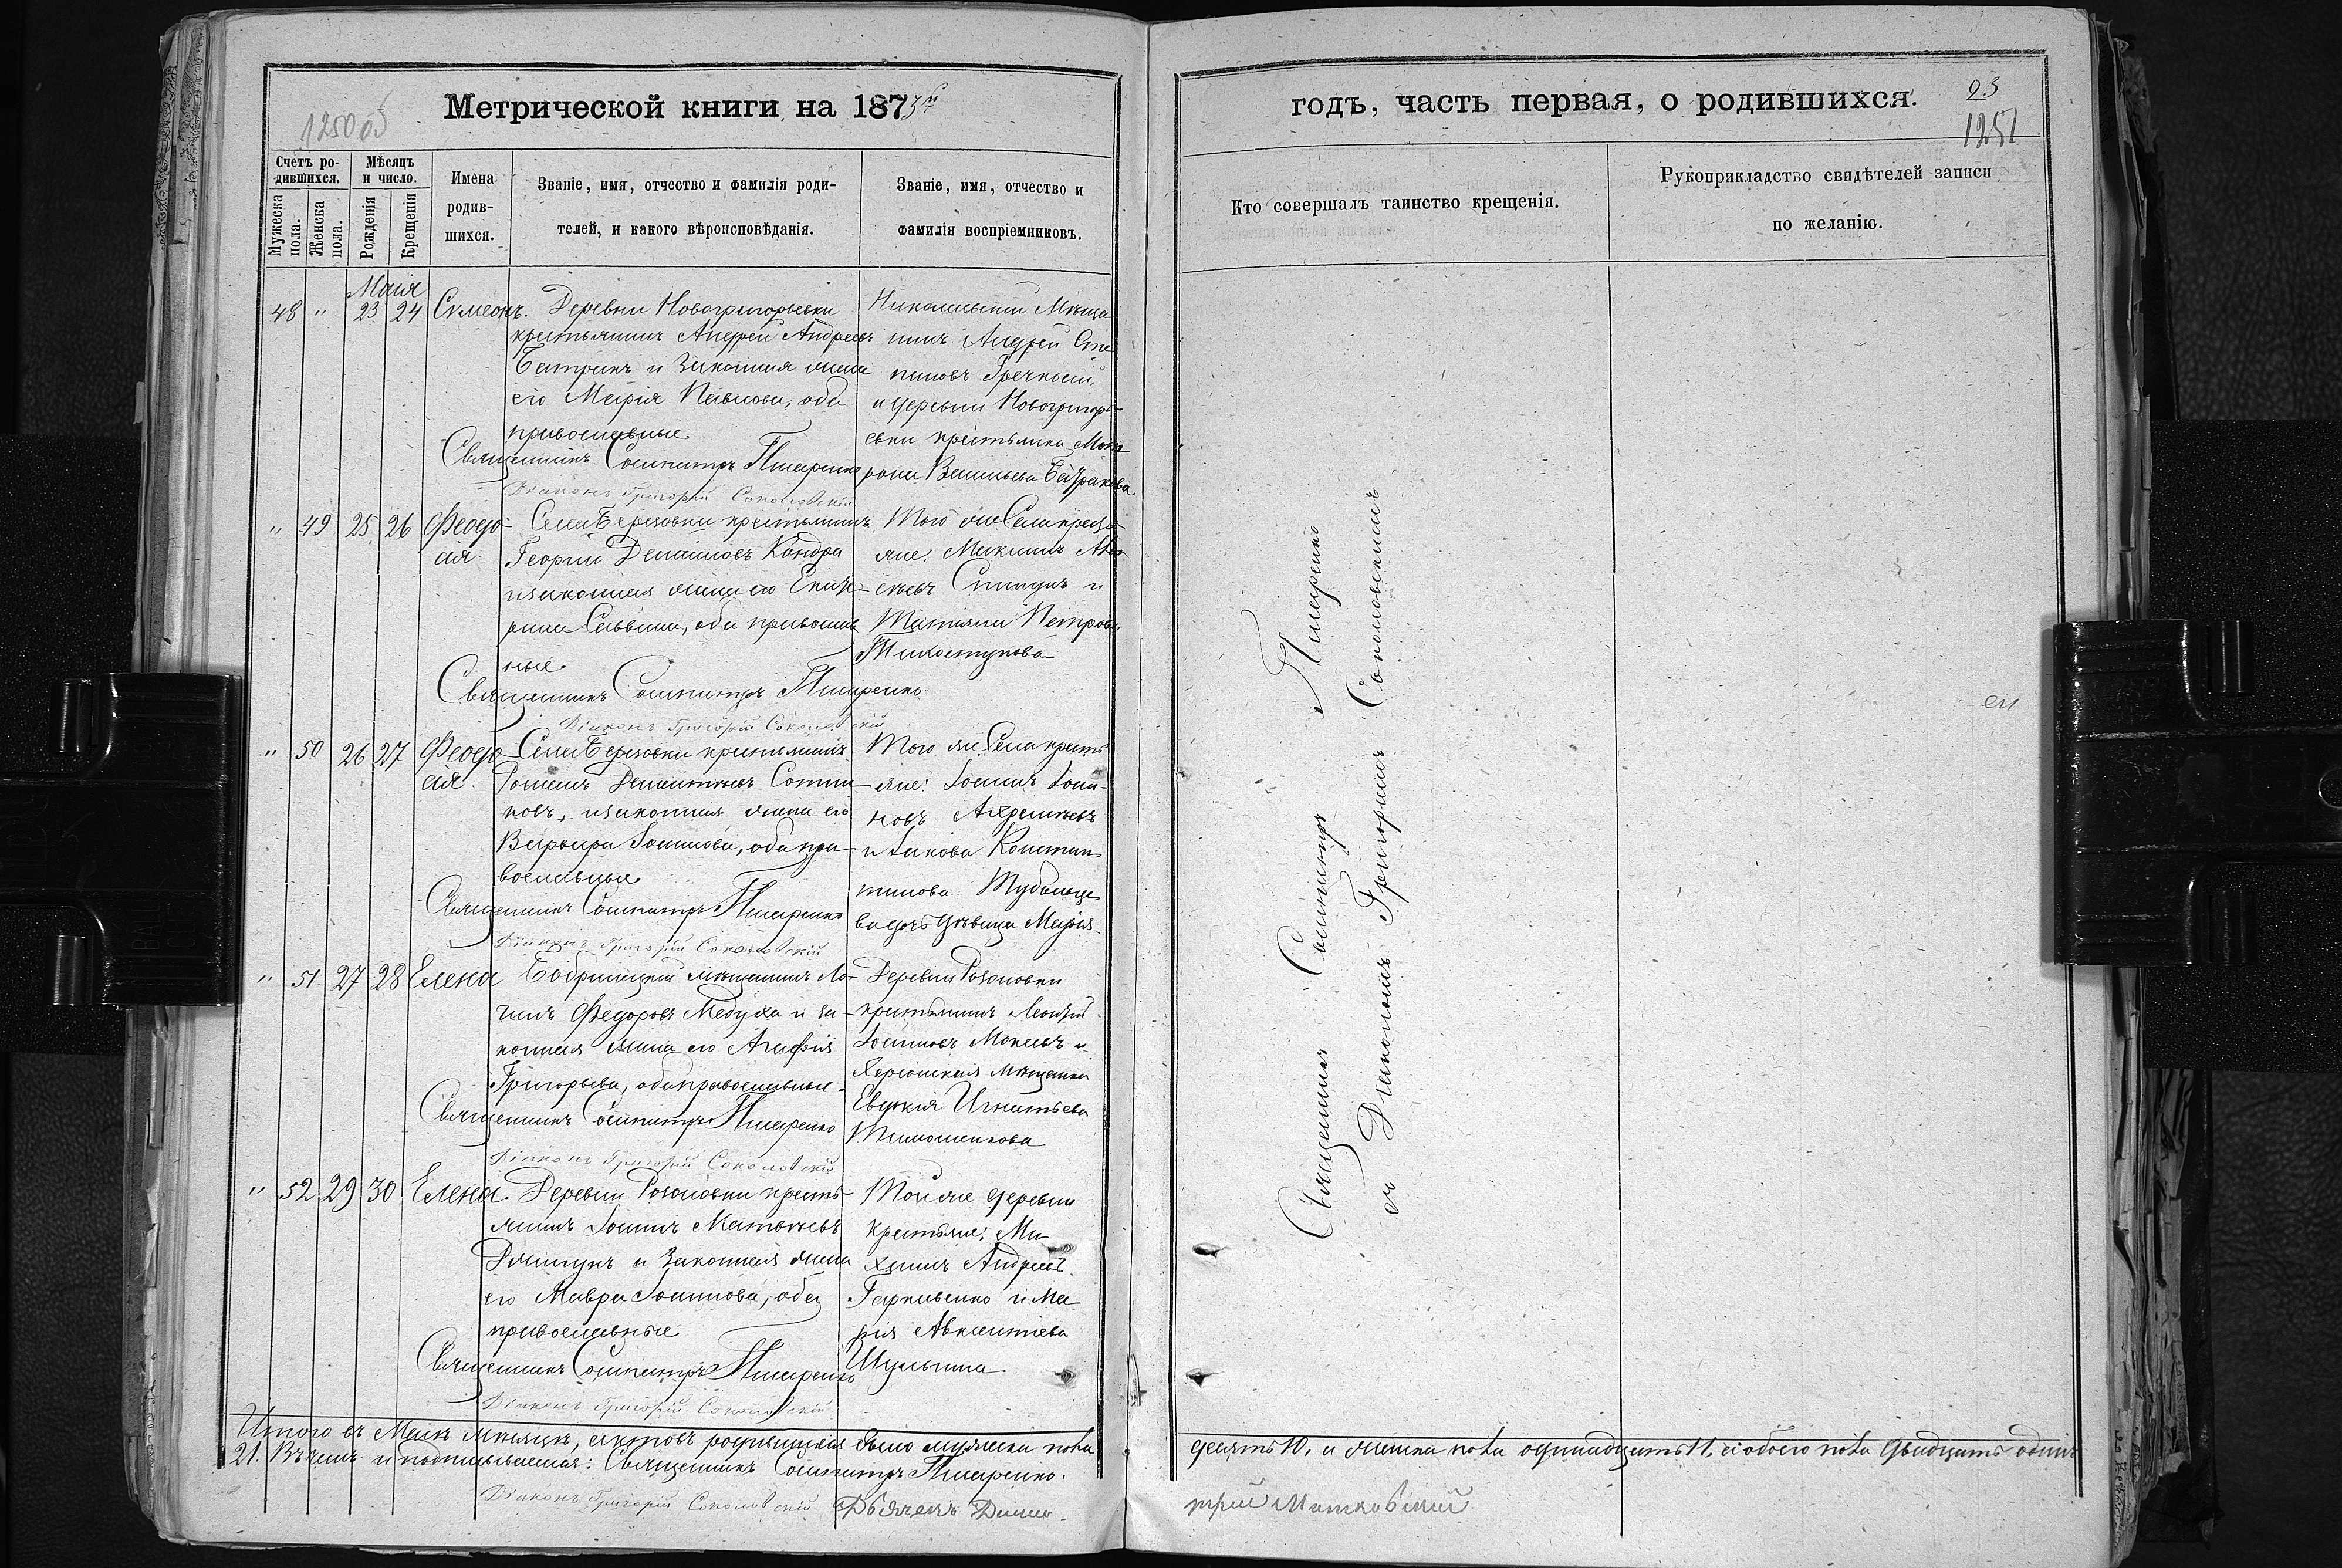 1250 об
Метрической книги на 1873й
Счетъ ро-
дившихся.
Мѣсяцъ
и число.
Мужеска
пола.
Женска
пола.
Рожденія
Крещенія
Имена
родив-
шихся.
Званіе, имя, отчество и фамилія роди-
телей, и какого вѣроисповѣданія.
Званіе, имя, отчество и
фамилія воспріемниковъ.
Маія
48 " 23 24 Симеонъ.
Деревни Новогригорьевки
крестьянинъ Андрей Андреевъ
и законная жена
его Марія Павлова, оба
православные
Священникъ Сосипатръ Писаренко
Діаконъ Григорій Соколовскій
Николаевскій Мѣща
нинъ Андрей Сте
пановъ
и деревни Новогригорь-
евки крестьянка Мат
рона Васильева
" 49 25 26 Феодо-
сія
Села Березовки крестьянинъ
Георгій
и законная жена его Екате-
рина Саввина, оба православ
ные.
Священникъ Сосипатръ Писаренко
Діаконъ Григорій Соколовскій
Того же Села кресть-
яне: Максимъ
и
Татіяна Петрова
" 50 26 27 Феодо
сія.
Села Березовки крестьянинъ
Романъ Дементьевъ Сотни
ковъ, и законная жена его
Варвара Іоаннова, оба пра-
вославные
Священникъ Сосипатръ Писаренко
Діаконъ Григорій Соколовскій
Того же Села кресть
яне: Іоаннъ Іоан-
новъ
и Іакова Констан
тинова
дочь дѣвица Марія.
" 51 27 28 Елена
мѣщанинъ Ло-
гинъ Федоровъ Медуха и за-
конная жена его Агафія
Григорьева, оба православные.
Священникъ Сосипатръ Писаренко
Діаконъ Григорій Соколовскій
Деревни Розоновки
крестьянинъ Леонтій
Іоанновъ и
Херсонская мѣщанка
Евдокія Игнатьева
Тимошенкова
" 52 29 30 Елена.
Деревни Розоновки кресть-
янинъ Іоаннъ Матвѣевъ
и законная жена
его Мавра Іоаннова, оба
православные
Священникъ Сосипатръ Писаренко
Діаконъ Григорій Соколовскій
Той же деревни
крестьяне: Ми
хаилъ Андреевъ
и Ма
рія Авксентіева
Шульгина
Итого въ Маіѣ Мѣсяцѣ, актовъ родившихся было мужеска пола
21. Въ чемъ и подписываемся: Священникъ Сосипатръ Писаренко.
Діаконъ Григорій Соколовскій Дьячекъ Дими-
годъ, часть первая, о родившихся.
23
1251
Кто совершалъ таинство крещенія.
Рукоприкладство свидѣтелей записи
по желанію.
Священникъ Сосипатръ Писаренко
съ Діакономъ Григоріемъ Соколовскимъ
десять 10, и женска пола одинадцать 11, а обоего пола двадцать одинъ
трій Матковскій